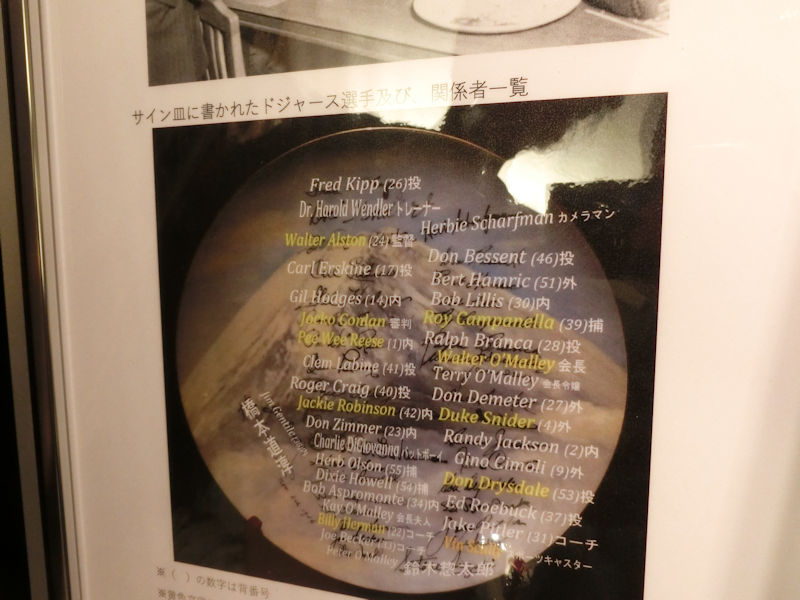 サイン皿に書かれたドジャース選手及び、関係者一覧
Fred Kipp (26)投
Dr. Harold Wendler トレーナー
Walter Alston (24)監督
Carl Erskine (17)投
Gil Hodges (14)内
Jocko Conlan 審判
Pee Wee Reese (1)内
Clem Labine (41)投
Roger Craig (40)投
Jackie Robinson (42)内
Don Zimmer (23)内
Charlie DiGiovanna バットボーイ
Herb Olson (55)捕
Dixie Howell (54)捕
Bob Aspromonte (34)内
Kay O'Malley 会長夫人
Billy Herman (22)コーチ
Joe Becker (33)コーチ
Peter O'Malley
Jim Gentile
Herbie Scharfman カメラマン
Don Bessent (46)投
Bert Hamric (51)外
Bob Lillis (30)内
Roy Campanella (39)捕
Ralph Branca (28)投
Walter O'Malley 会長
Terry O'Malley 会長令嬢
Don Demeter (27)外
Duke Snider (4)外
Randy Jackson (2)内
Gino Cimoli (9)外
Don Drysdale (53)投
Ed Roebuck (37)投
Jake Pitler (31)コーチ
Vin Scully スポーツキャスター
鈴木惣太郎
※（ ）の数字は背番号